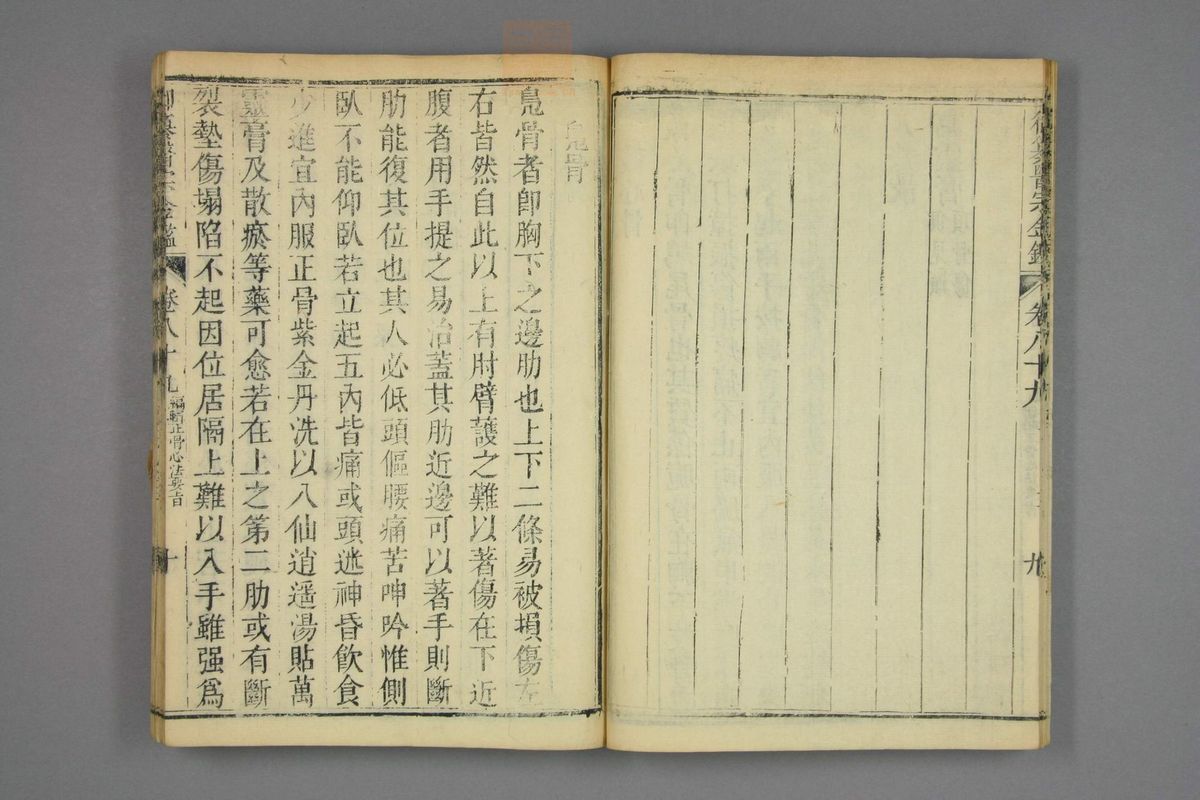 御纂醫宗金鑑 卷八十九
九
鳧骨
鳧骨者卽胸下之邊肋也上下二條易被損傷左
右皆然自此以上有肘臂護之難以著傷在下近
腹者用手提之易治蓋其肋近邊可以著手則斷
肋能復其位也其人必低頭傴腰痛苦呻吟惟側
臥不能仰臥若立起五內皆痛或頭迷神昏飮食
少進宜內服正骨紫金丹洗以八仙逍遥湯貼萬
靈膏及散瘀等藥可愈若在上之第二肋或有斷
裂墊傷塌陷不起因位居隔上難以入手雖强爲
御纂醫宗金鑑 卷八十九 編輯正骨心法要旨
十